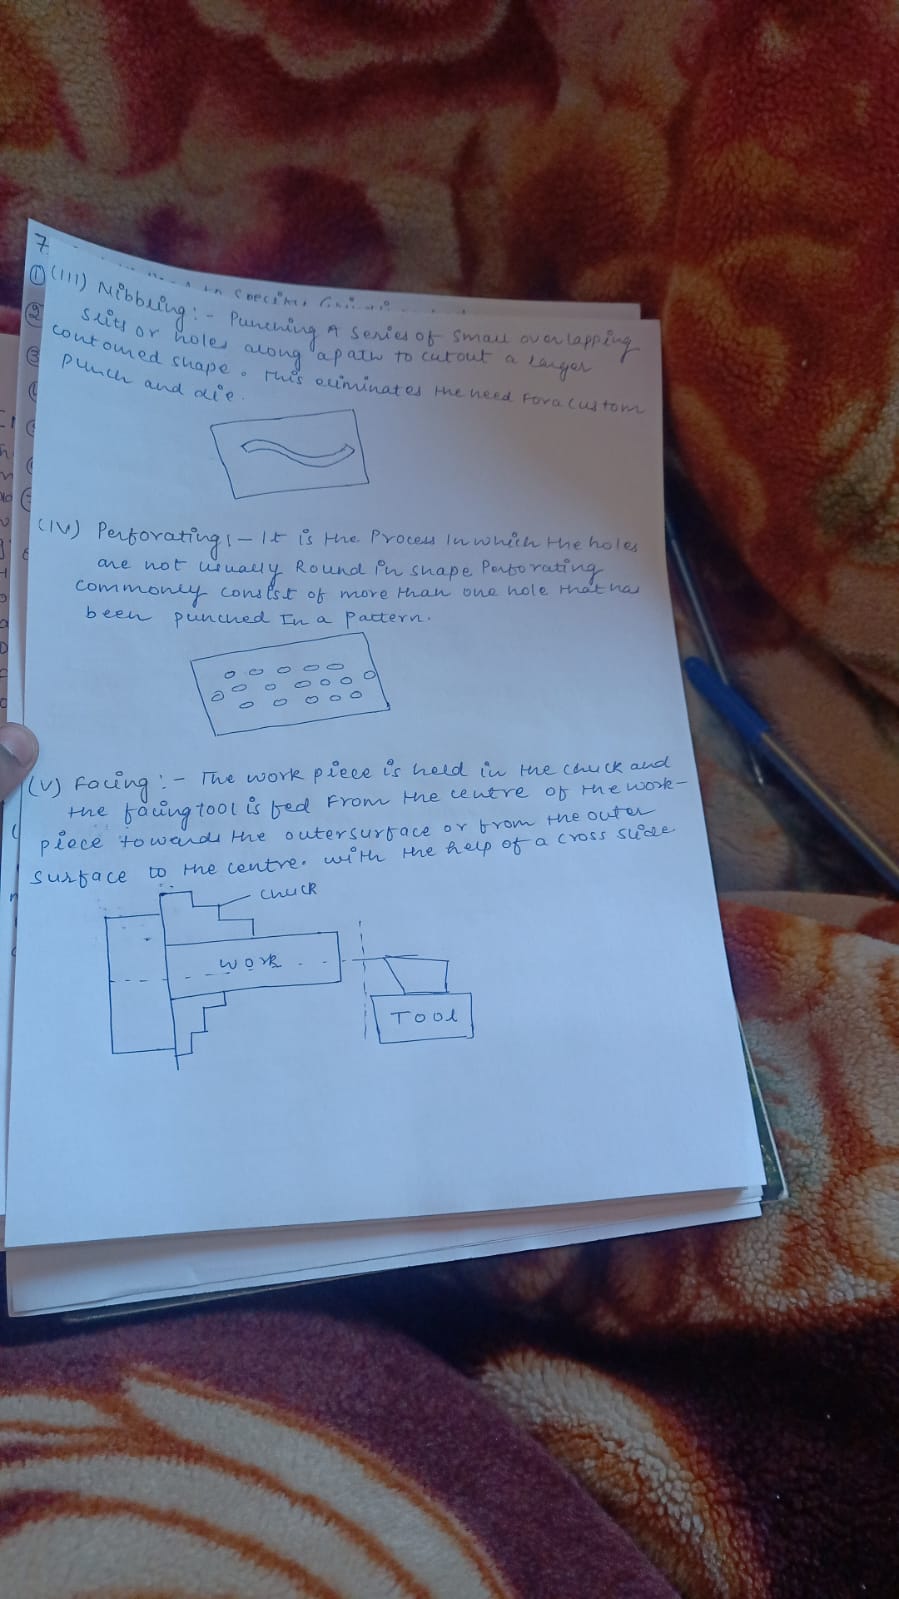 7
(III) Nibbling :- Punching A series of small overlapping
slits or holes along a path to cut out a larger
contoured shape. This eliminates the need For a custom
Punch and die.
(IV) Perforating :- It is the Process In which the holes
are not usually Round in shape Perforating
commonly consist of more than one hole that has
been punched In a pattern.
(V) Facing :- The work piece is held in the chuck and
the facing tool is fed From the centre of the work-
piece towards the outersurface or from the outer
surface to the centre. with the help of a cross slide
chuck
work
Tool